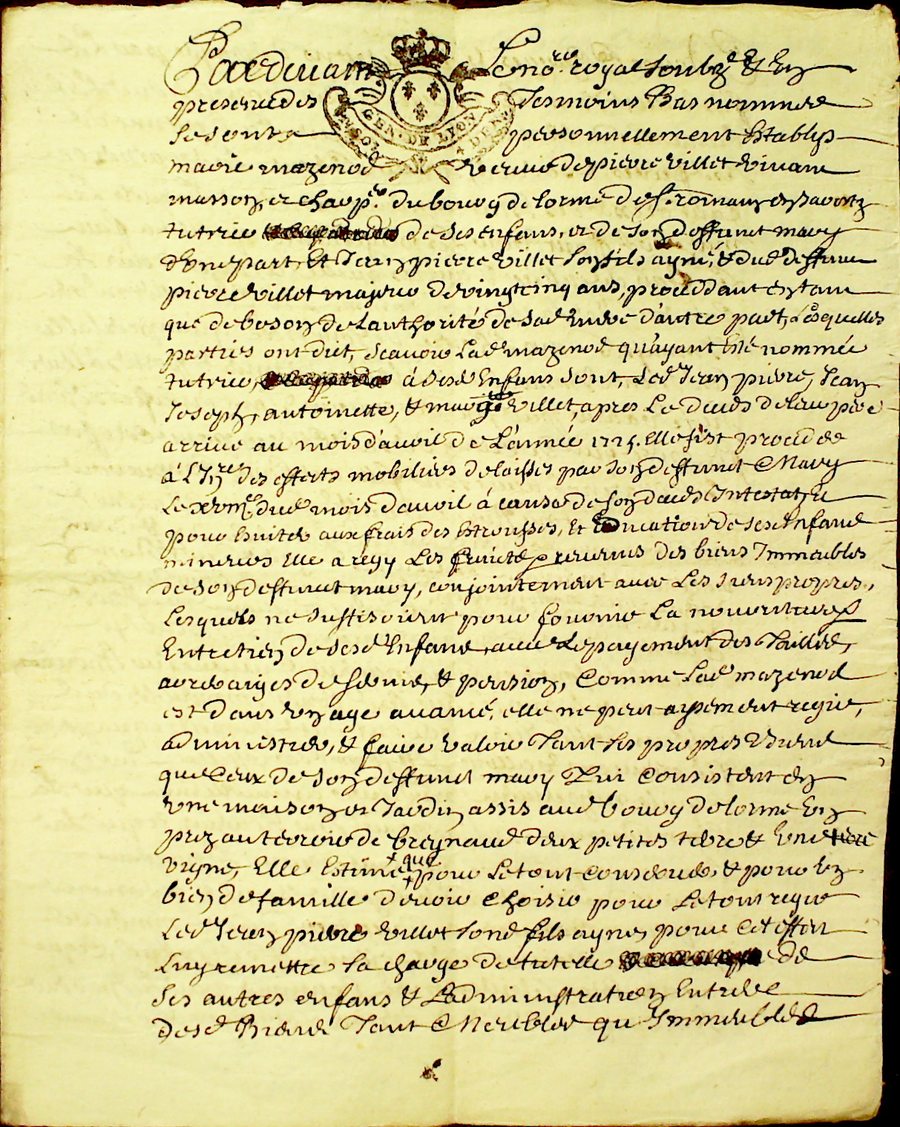 Pardevant Le no.re royal soubz.é & En
presence des tesmoins Bas nommes
GEN. DE LYON
personnellement Establys
marie mazenod veuve de pierre villet vivant
masson, et charp.r du bourg de lorme de s.t romain en
tutrice de ses enfans, et de son deffunct mary
d'une part, Et Jean pierre villet son fils ayné, & dud. deffunct
pierre villet majeur de vingt cinq ans, proceddant en tant
que de besoin de l'authorité de sad. mere d'autre part, Lesquelles
parties ont dit, scavoir Lad. mazenod qu'ayant esté nommée
tutrice, à sesd. Enfans sont, Led. Jean pierre, Jean
Joseph, antoinette, & villet, apres Le deceds de leur pere
arrivé au mois d'avril de L'année 1725. Elle fist proceder
à L'Jn.re des effects mobiliers delaissés par son deffunct Mary
Le dud. mois d'avril à cause de son deceds Intestat, &
pour Eviter aux frais des Estrousses, Et Education de sesd. Enfans
mineurs Elle a regy Les fruicts & revenus des biens Immeubles
de son deffunct mary, conjointement avec Les siens propres,
Lesquels ne suffisoient pour fournir La nourriture &
Entretien de sesd. Enfans, avec Le payement des Tailles,
arrerages de servis, & pension, Comme Lad. mazenod
est dans un age avancé, elle ne peut aysement regir,
administrer, & faire valoir Tant ses propres Biens
que Ceux de son deffunct mary Qui Consistent en
Une maison et Jardin assis aud. bourg de lorme Un
prez au terroir de breynaud deux petites terre & Une terre
vigne, Elle Estime que pour Le tout Conserver & pour Un
bien de famille devoir Choisir pour Le tout regir
Led. Jean pierre villet sond. fils ayné, pour Cet effect
Luy remettre La charge de tutelle de
ses autres enfans & L'administration Entiere
desd. Biens Tant Meubles qu'Immeubles